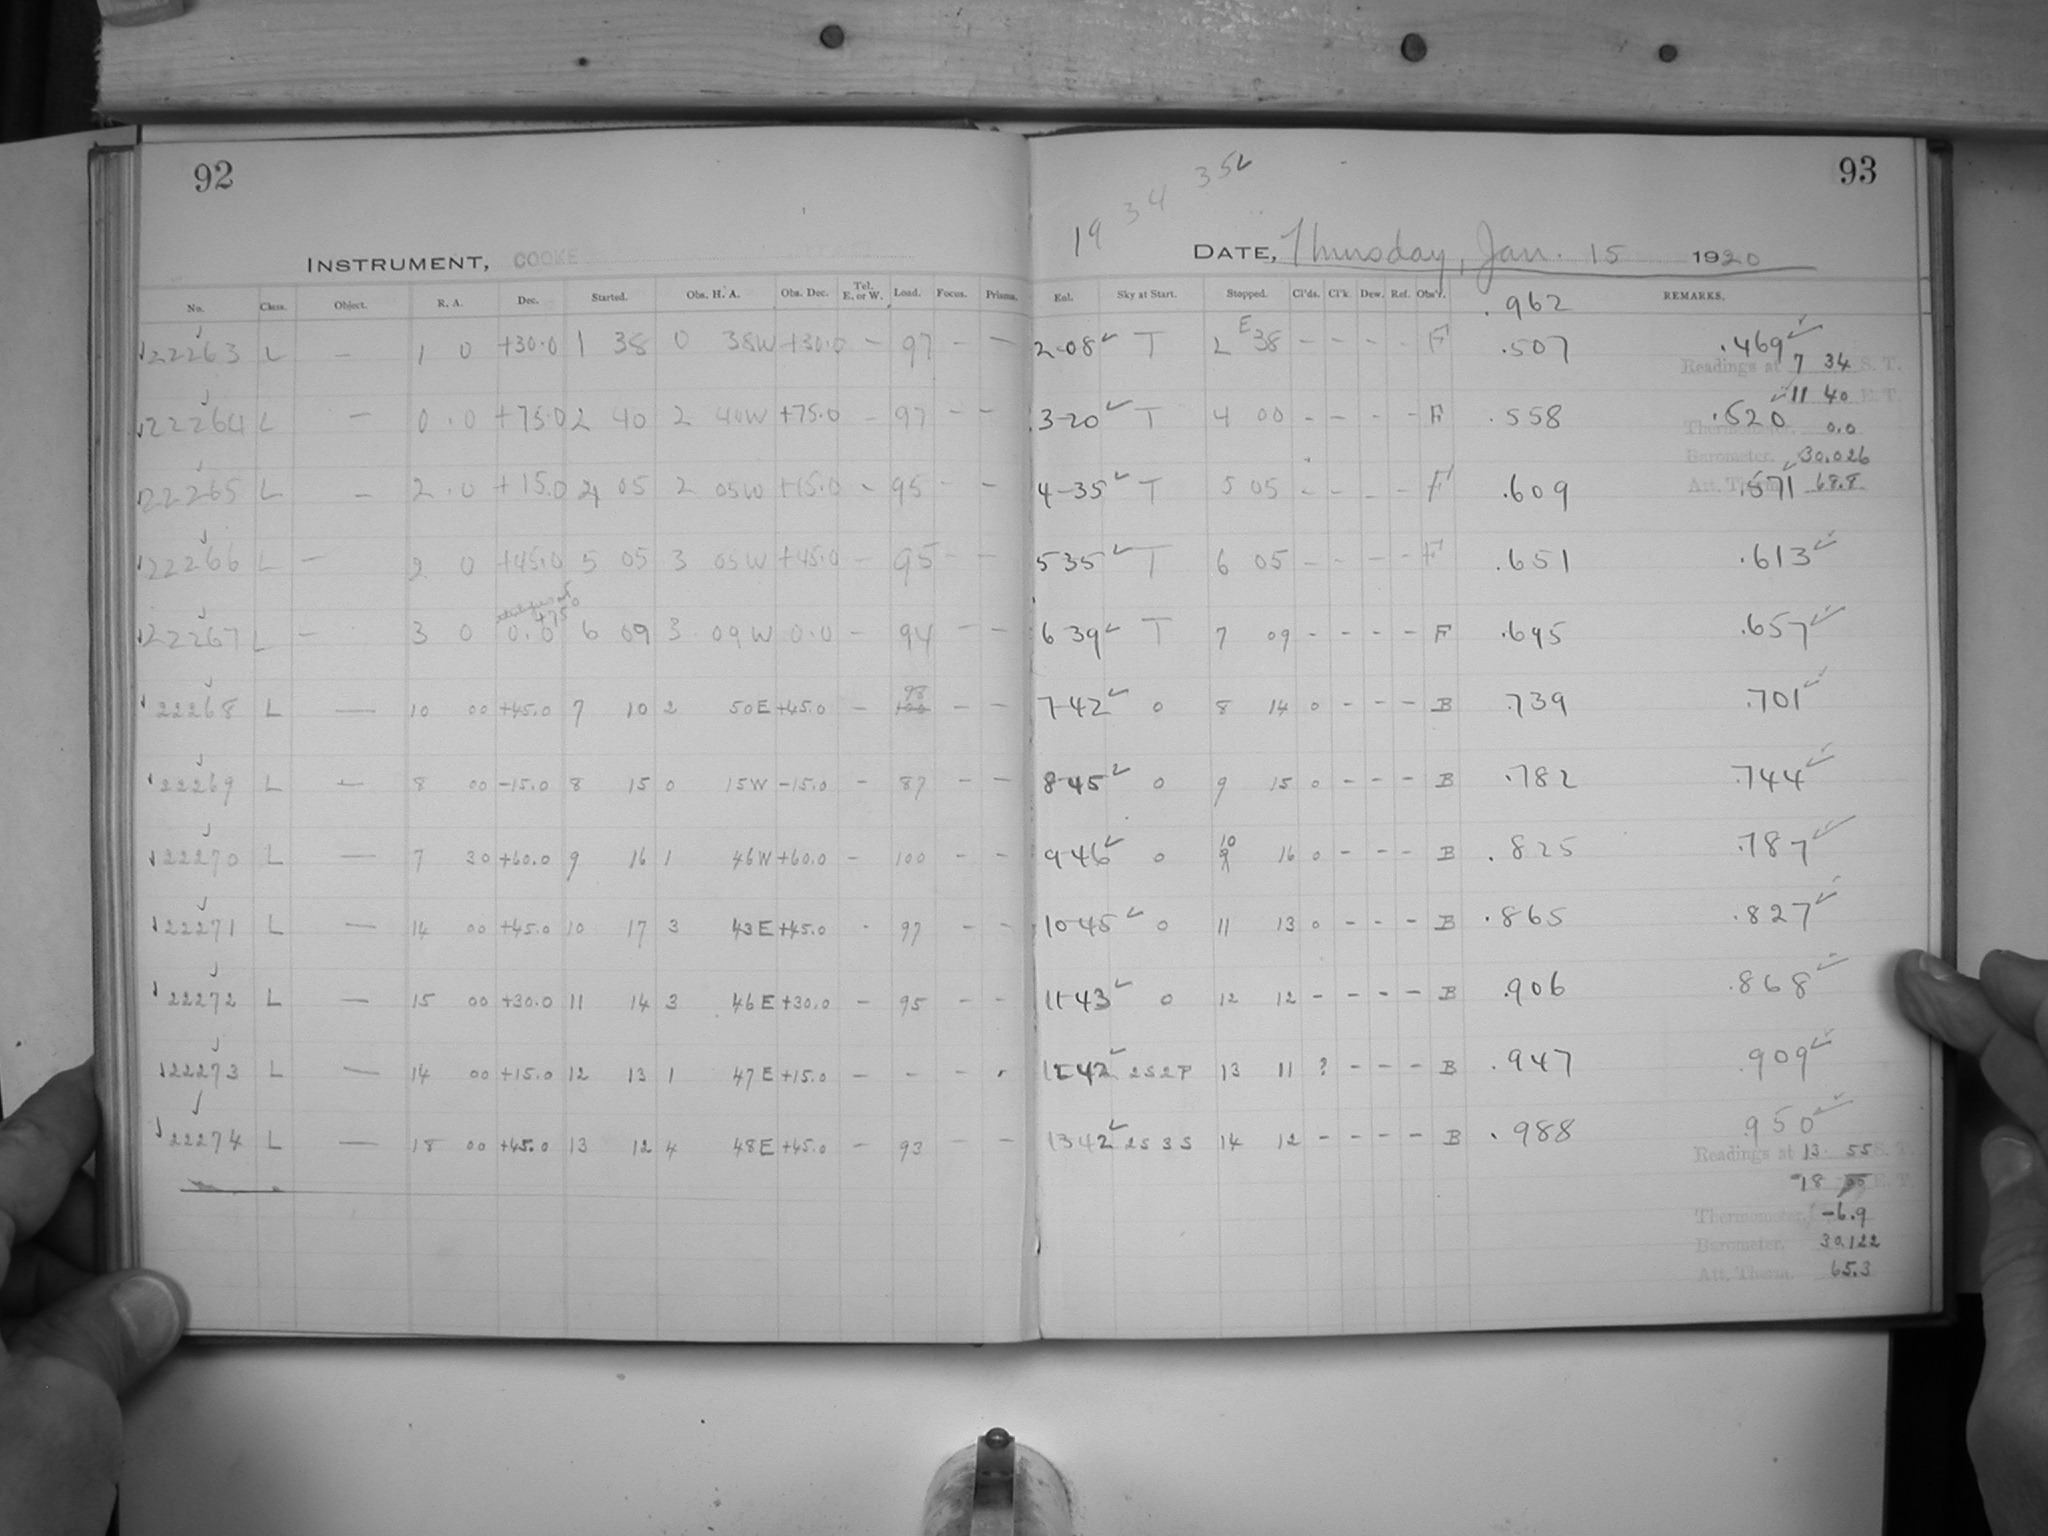 92
INSTRUMENT, COOKE
No. Class. Object. R. A. Dec. Started. Obs. H. A. Obs. Dec. Tel. E. or W. Load. Focus. Prisms.
22263 L – 1 0 +30.0 1 38 0 38W +30.0 – 97 – –
22264 L – 0.0 +75.0 2 40 2 40W +75.0 – 97 – –
22265 L – 2.0 +15.0 4 05 2 05W +15.0 – 95 – –
22266 L – 2 0 +45.0 5 05 3 05W +45.0 – 95 – –
22267 L – 3 0 0.0 6 09 3 09W 0.0 – 94 – –
22268 L — 10 00 +45.0 7 10 2 50E +45.0 – 98 – –
22269 L — 8 00 -15.0 8 15 0 15W -15.0 – 87 – –
22270 L — 7 30 +60.0 9 16 1 46W +60.0 – 100 – –
22271 L — 14 00 +45.0 10 17 3 43E +45.0 - 97 – –
22272 L — 15 00 +30.0 11 14 3 46E +30.0 – 95 – –
22273 L — 14 00 +15.0 12 13 1 47E +15.0 – – – -
22274 L — 18 00 +45.0 13 12 4 48E +45.0 – 93 – –
93
19 34 35
DATE, Thursday, Jan. 15 1920
Enl. Sky at Start. Stopped. Cl'ds. Cl'k. Dew. Ref. Obs'r. .962 REMARKS.
2-08 T 2 E 38 – – – - F .507 .469
Readings at 7 34 S. T.
11 40 E. T.
3-20 T 4 00 - – – - F .558 .520
Thermometer, 0.0
Barometer. 30.026
4-35 T 5 05 - – – - F .609 .571
Att. Therm. 68.8
535 T 6 05 – - – - F .651 .613
639 T 7 09 - – – – F .695 .657
742 0 8 14 0 - – – B .739 .701
845 0 9 15 0 – – – B .782 .744
946 0 10 16 0 – – – B .825 .787
1045 0 11 13 0 – – – B .865 .827
1143 0 12 12 – – – – B .906 .868
1242 2S2P 13 11 ? – – – B .947 .909
1342 2S3S 14 12 – – – – B .988 .950
Readings at 13 55 S. T.
18 E. T.
Thermometer, -6.9
Barometer. 30.122
Att. Therm. 65.3